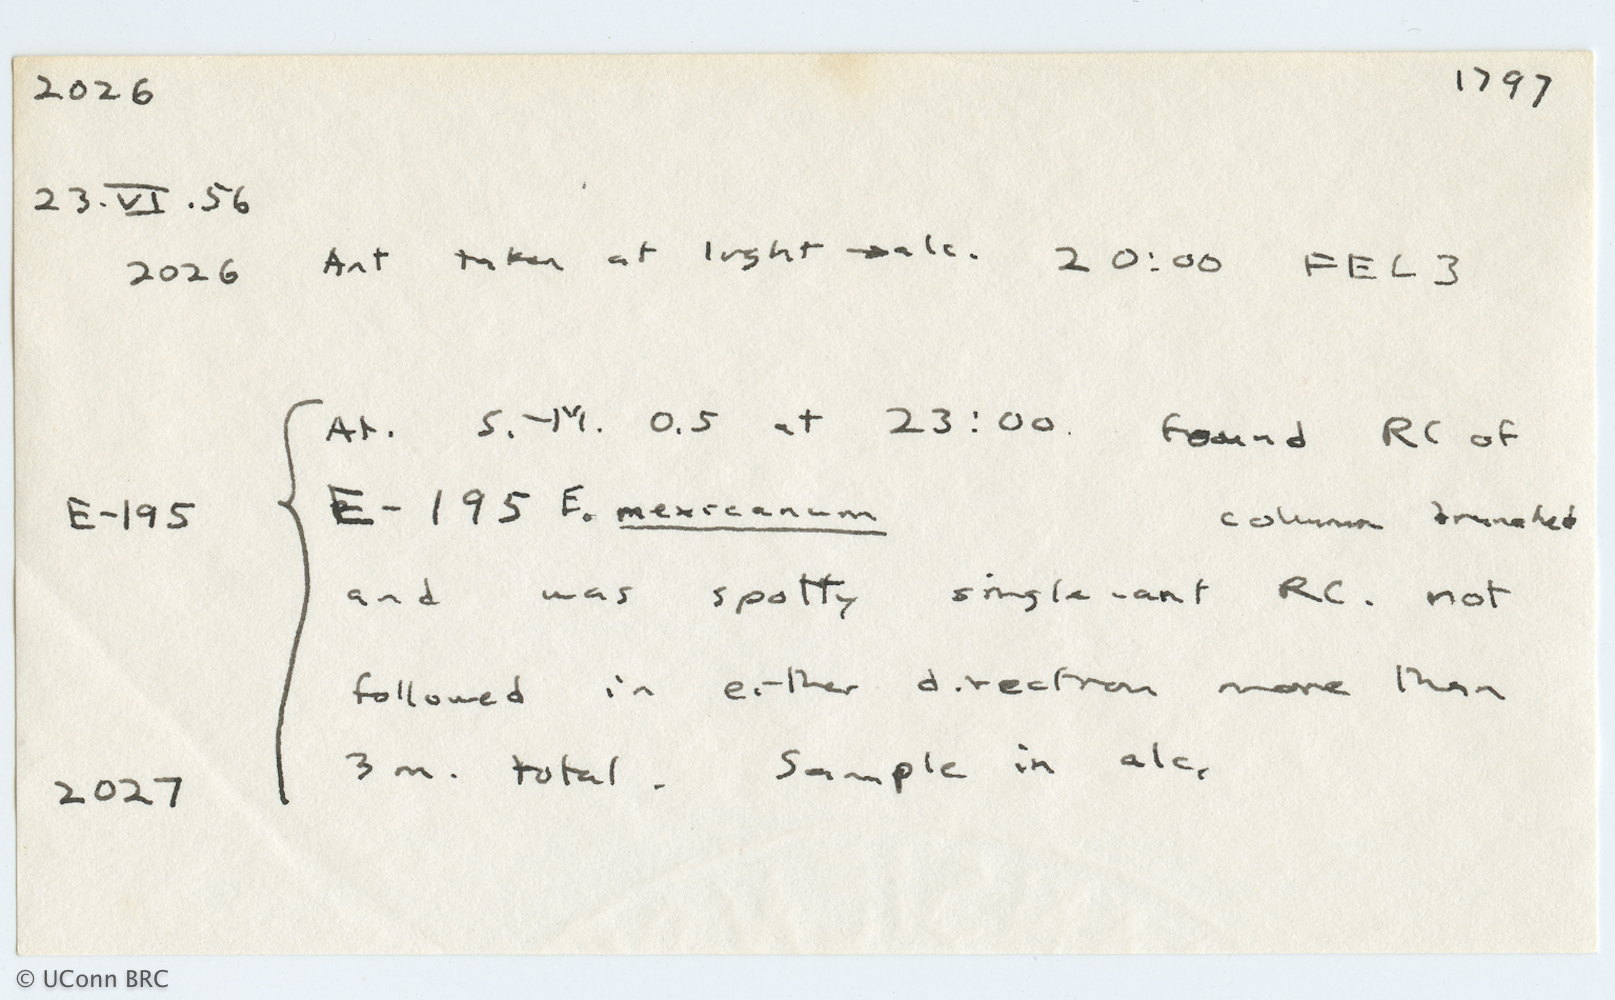 2026 1797
23.VI.56
2026 Ant taken at light → alc. 20:00 FEL3
At. S.-M. 0.5 at 23:00. Found RC of
E-195 E-195 E. mexicanum column branched
and was spotty single-ant RC. not
followed in either direction more than
3 m. total. Sample in alc.
2027
© UConn BRC